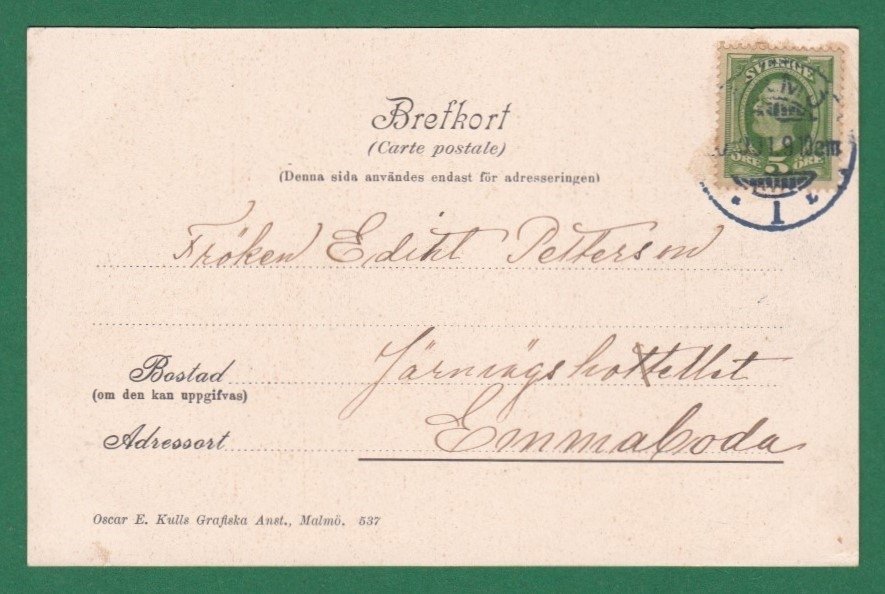 Brefkort
(Carte postale)
(Denna sida användes endast för adresseringen)
SVERIGE
5
ÖRE ÖRE
1
Fröken Ediht Petterson
Bostad
Järnvägshottellet
(om den kan uppgifvas)
Adressort
Emmaboda
Oscar E. Kulls Grafiska Anst., Malmö. 537